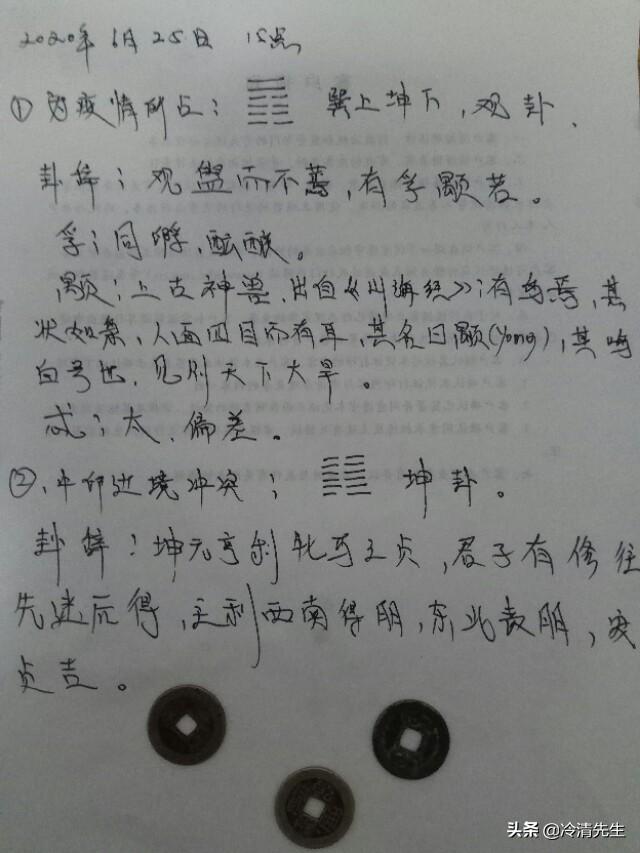 2020年6月25日 15点
①为疫情所占： 巽上坤下，观卦、
卦辞：观盥而不荐，有孚颙若。
孚：同孵，酝酿。
颙：上古神兽，出自《山海经》：有鸟焉，其
状如枭，人面四目而有耳，其名曰颙(yong)，其鸣
自号也，见则天下大旱。
忒：太、偏差。
②、中印边境冲突： 坤卦。
卦辞：坤元亨利牝马之贞，君子有攸往
先迷后得，主利西南得朋，东北丧朋，安
贞吉。
头条 @冷清先生